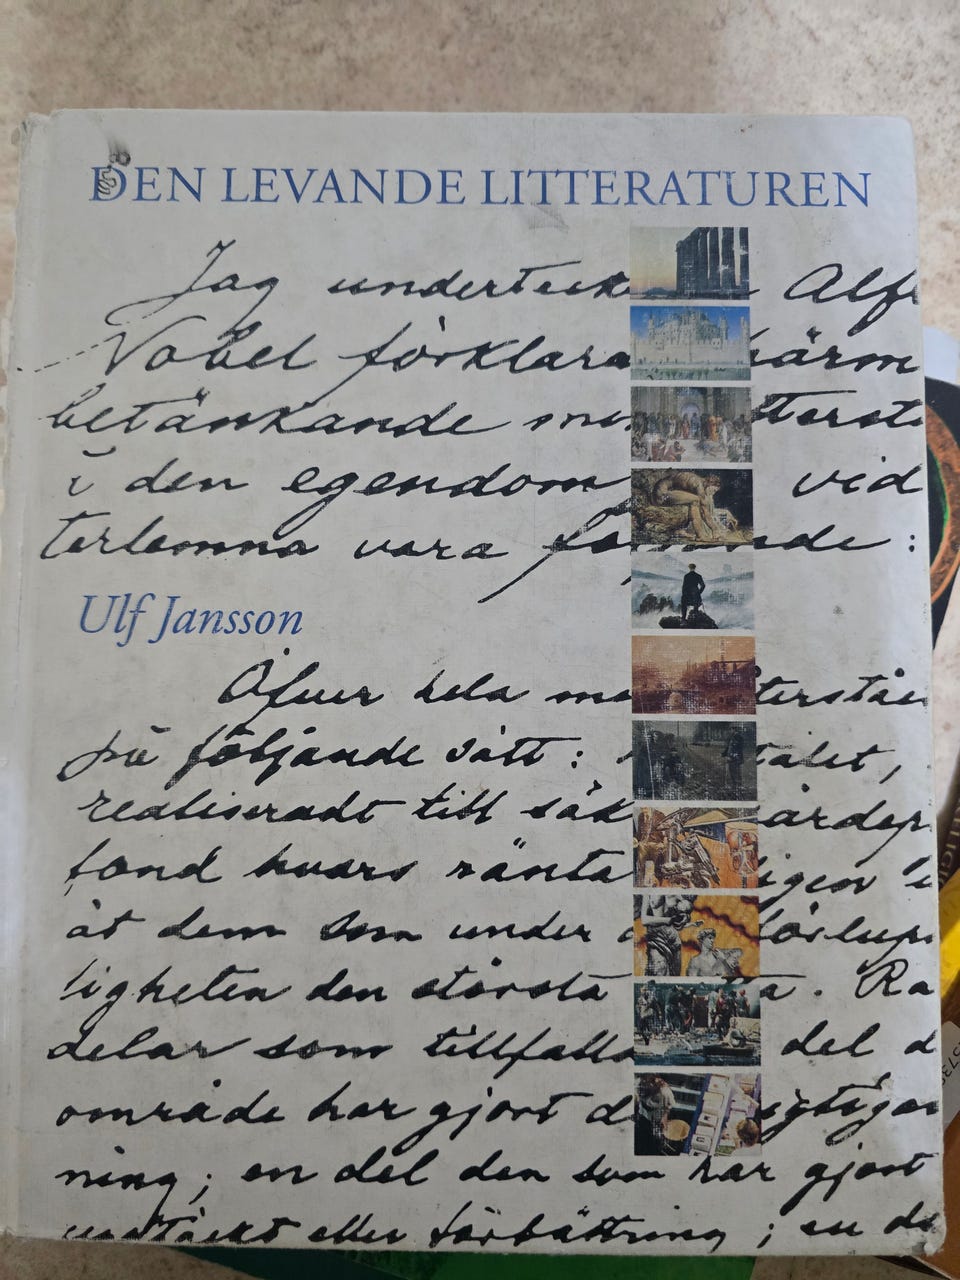 DEN LEVANDE LITTERATUREN
Jag underteck Alf
Nobel förklara härm
betänkande min ttersta
i den egendom vid
terlemna vara följande:
Ulf Jansson
Öfver hela me återståen
på följande sätt: talet,
realiseradt till säk värdep
fond hvars ränta ligen
åt dem som under förlup
ligheten den största ta. Ra
delar som tillfalla del d
område har gjort d vigtigas
ning; en del den som har gjort
upptäckt eller förbättring; en de